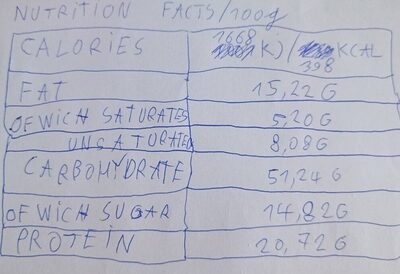 NUTRITION FACTS/100g
CALORIES 1668 KJ/ KCAL
398
FAT 15,22G
OF WICH SATURATES 5,20G
UNSATURATED 8,08G
CARBOHYDRATE 51,24G
OF WICH SUGAR 14,82G
PROTEIN 20,72G